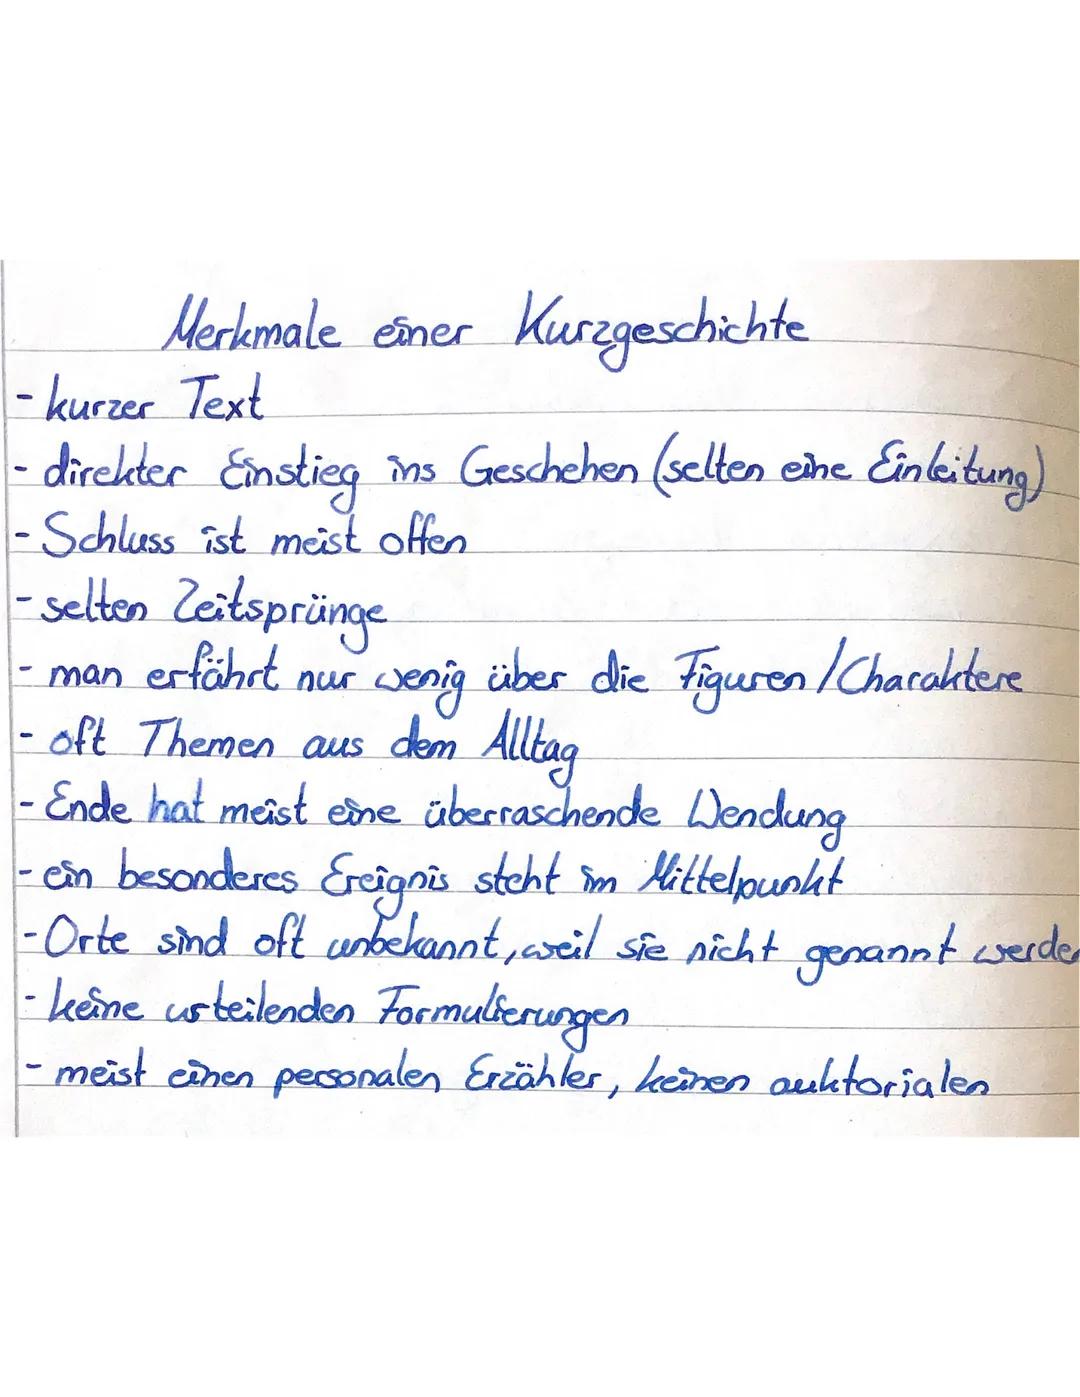 Merkmale einer Kurzgeschichte
- kurzer Text
- direkter Einstieg ins Geschehen (selten eine Einleitung)
- Schluss ist meist offen
- selten Zeitsprünge
- man erfährt nur wenig über die Figuren / Charaktere
- oft Themen aus dem Alltag
- Ende hat meist eine überraschende Wendung
- ein besonderes Ereignis steht im Mittelpunkt
- Orte sind oft unbekannt, weil sie nicht genannt werde
- keine urteilenden Formulierungen
- meist einen personalen Erzähler, keinen auktorialen